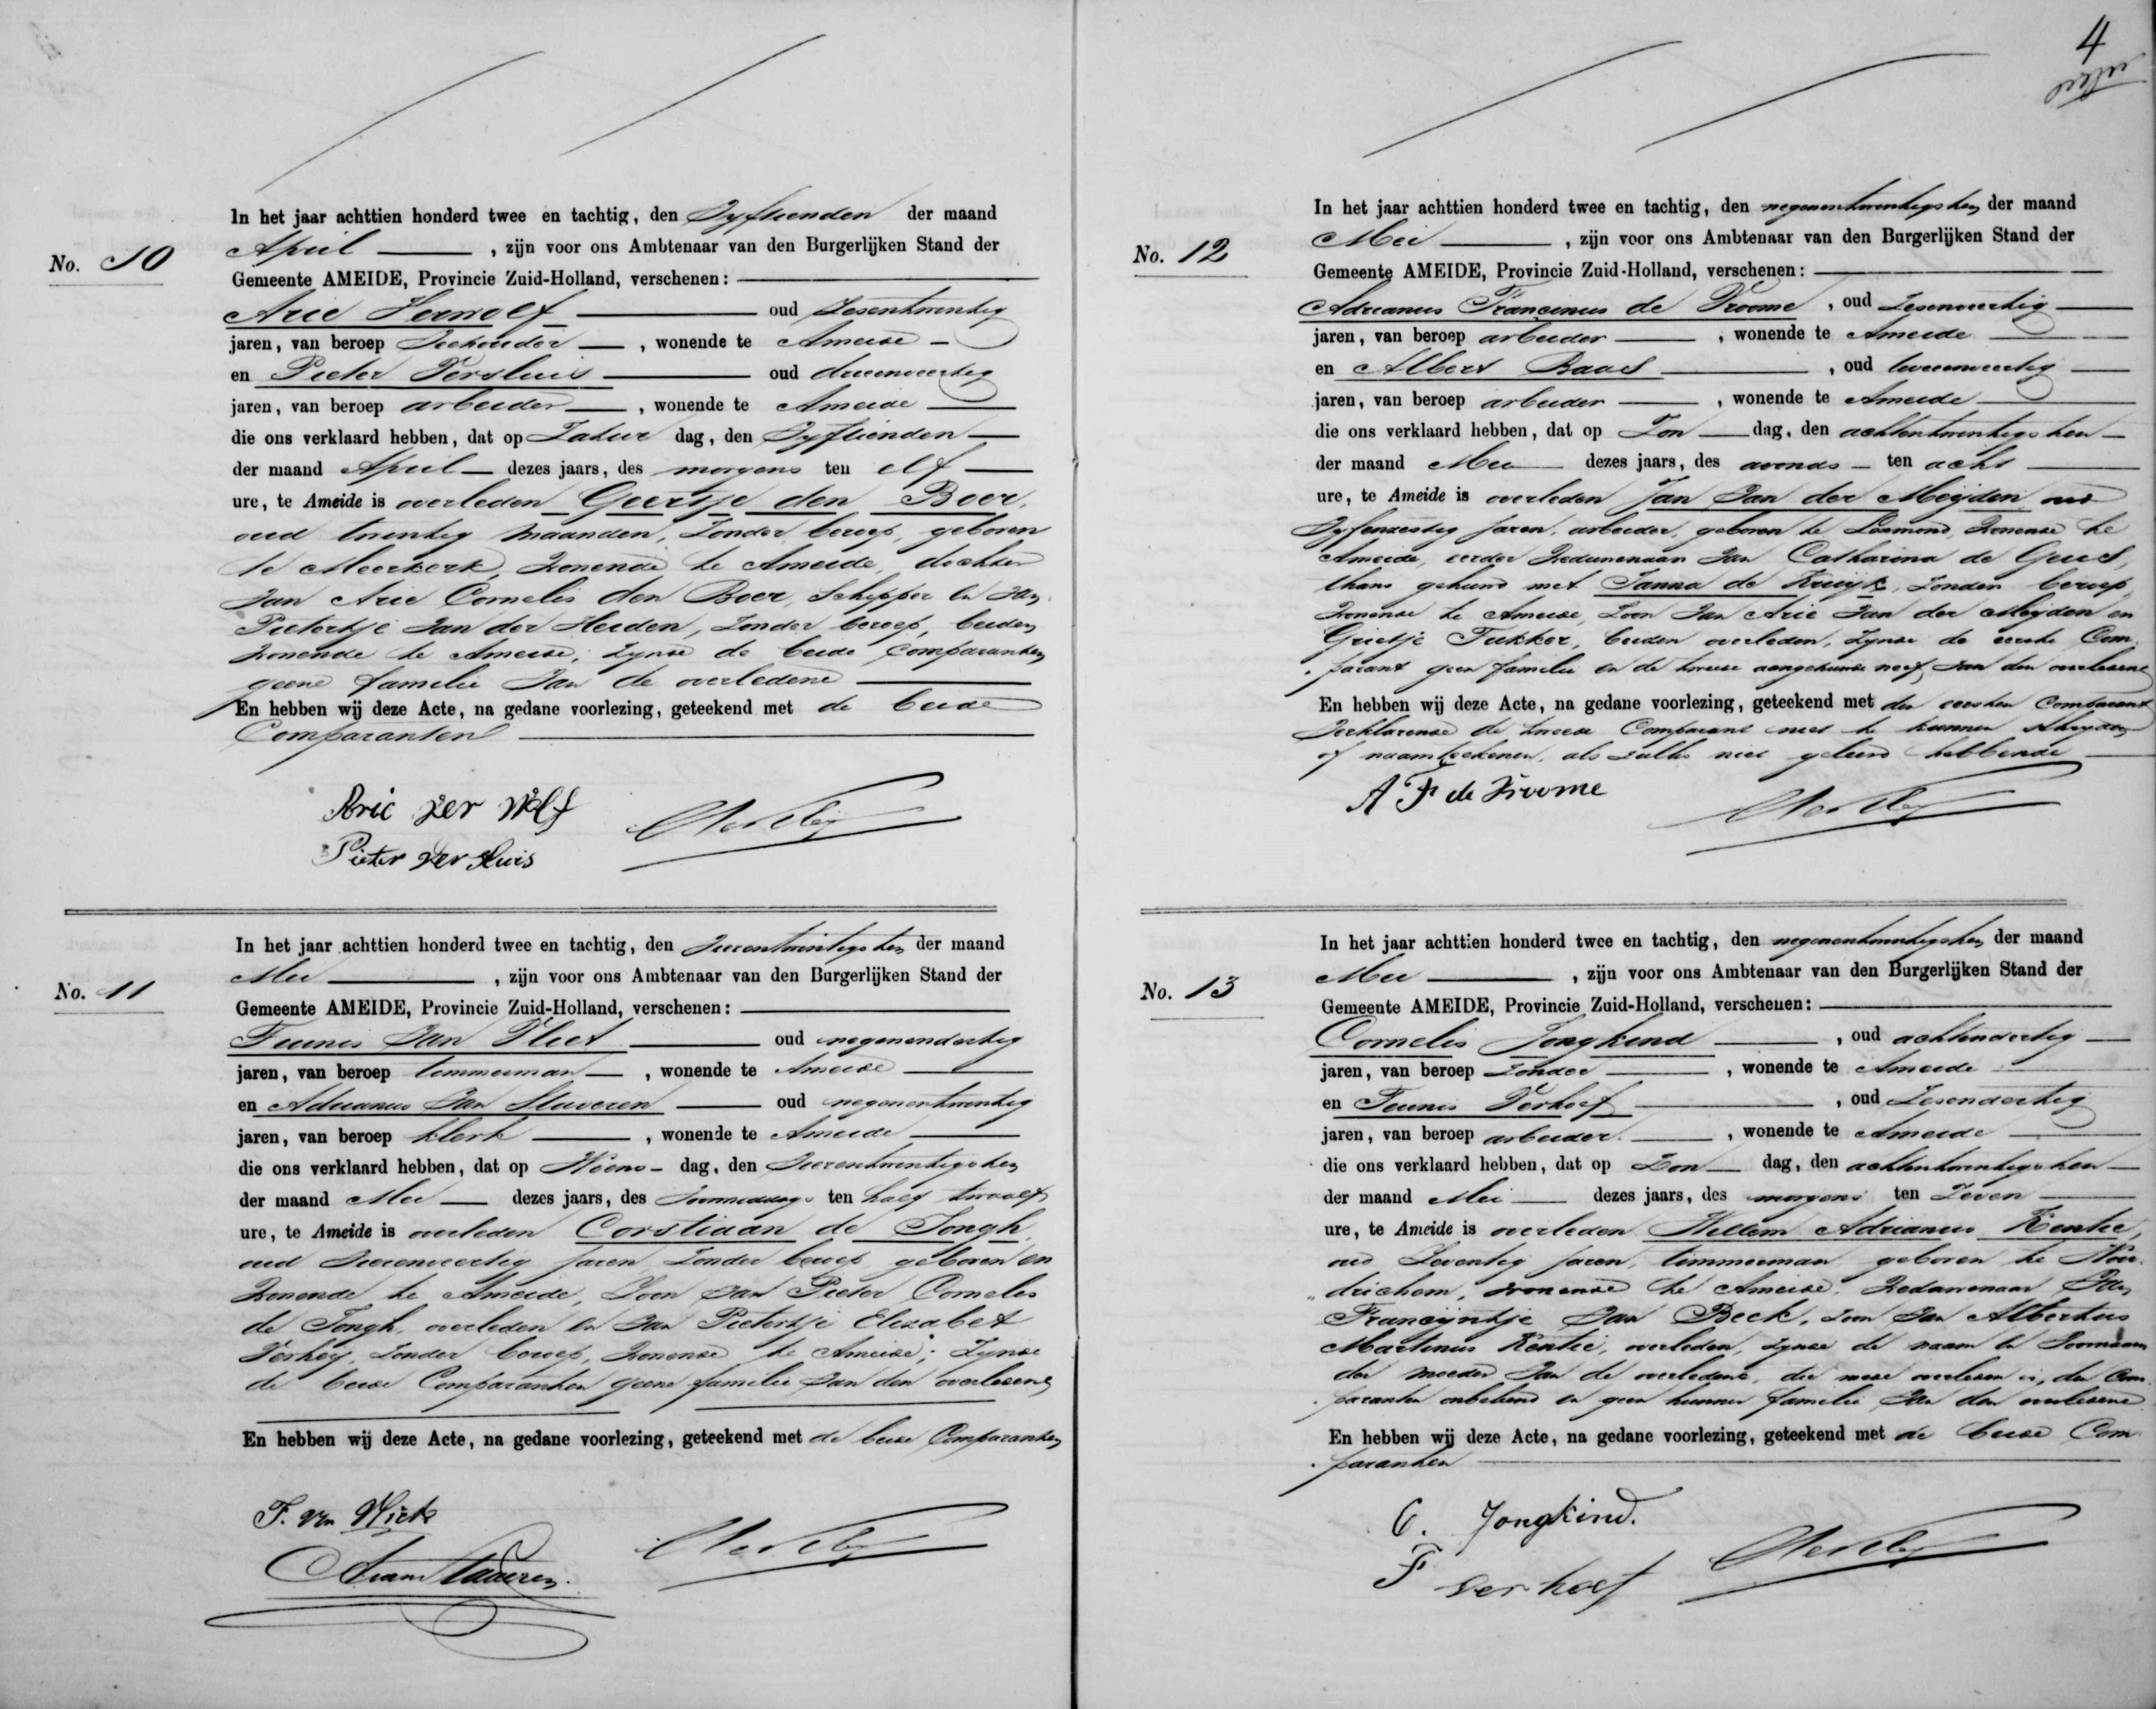 No. 10
In het jaar achttien honderd twee en tachtig, den Vyftienden der maand
April , zijn voor ons Ambtenaar van den Burgerlijken Stand der
Gemeente AMEIDE, Provincie Zuid-Holland, verschenen:
Arie Verwolf oud Zesentwintig
jaren, van beroep Veehouder , wonende te Ameide
en Pieter Versluis oud drieenveertig
jaren, van beroep arbeider , wonende te Ameide
die ons verklaard hebben, dat op Zatur dag, den Vyftienden
der maand April dezes jaars, des morgens ten elf
ure, te Ameide is overleden Geertje den Boer,
oud twintig maanden, Zonder beroep, geboren
te Meerkerk, Wonende te Ameide, dochter
van Arie Cornelis den Boer, Schipper en van
Pietertje van der Heiden, Zonder beroep, beiden
Wonende te Ameide; zynde de beide Comparanten
geene familie van de overledene
En hebben wij deze Acte, na gedane voorlezing, geteekend met de beide
Comparanten
Arie ver Wolf
Pieter ver sluis
No. 11
In het jaar achttien honderd twee en tachtig, den Vierentwintigsten der maand
Mei , zijn voor ons Ambtenaar van den Burgerlijken Stand der
Gemeente AMEIDE, Provincie Zuid-Holland, verschenen:
Teunis van Vliet oud negenendertig
jaren, van beroep timmerman , wonende te Ameide
en Adrianus van Staveren oud negenentwintig
jaren, van beroep klerk , wonende te Ameide
die ons verklaard hebben, dat op Woens- dag, den Vierentwintigsten
der maand Mei dezes jaars, des Voormiddags ten half twaalf
ure, te Ameide is overleden Corstiaan de Jongh,
oud Vierenveertig jaren, Zonder beroep, geboren en
Wonende te Ameide, Zoon van Pieter Cornelis
de Jongh, overleden en van Pietertje Elizabet
Verhey, Zonder beroep, Wonende te Ameide; Zynde
de beide Comparanten geene familie van den overledene
En hebben wij deze Acte, na gedane voorlezing, geteekend met de beide Comparanten
T. van Vliet
A van Staveren
4
No. 12
In het jaar achttien honderd twee en tachtig, den negenentwintigsten der maand
Mei , zijn voor ons Ambtenaar van den Burgerlijken Stand der
Gemeente AMEIDE, Provincie Zuid-Holland, verschenen:
Adrianus Francinus de Vroome , oud Zesenveertig
jaren, van beroep arbeider , wonende te Ameide
en Albert Baas , oud tweeenveertig
jaren, van beroep arbeider , wonende te Ameide
die ons verklaard hebben, dat op Zon dag, den achtentwintigsten
der maand Mei dezes jaars, des avonds ten acht
ure, te Ameide is overleden Jan van der Meijden, oud
Vyfenzestig jaren, arbeider, geboren te Wonende te
Ameide, eerder Weduwenaar van Catharina de Geus,
thans gehuwd met Janna de Kruijk, Zonder beroep,
Wonende te Ameide, Zoon van Arie van der Meyden en
Grietje Tukker, beiden overleden, Zynde de eerste Com
parant geen familie en de tweede aangehuwde neef van den overledene
En hebben wij deze Acte, na gedane voorlezing, geteekend met den eersten Comparant
Verklarende de tweede Comparant niet te kunnen schryven
of naamteekenen, als zulks niet geleerd hebbende
A F de Vroome
No. 13
In het jaar achttien honderd twee en tachtig, den negenentwintigsten der maand
Mei , zijn voor ons Ambtenaar van den Burgerlijken Stand der
Gemeente AMEIDE, Provincie Zuid-Holland, verschenen:
Cornelis Jongkind , oud achtendertig
jaren, van beroep Zonder , wonende te Ameide
en Teunis Verhoef , oud Zesendertig
jaren, van beroep arbeider , wonende te Ameide
die ons verklaard hebben, dat op Zon dag, den achtentwintigsten
der maand Mei dezes jaars, des morgens ten Zeven
ure, te Ameide is overleden Willem Adrianus Kentie,
oud Zeventig jaren, timmerman geboren te Wou
drichem, wonende te Ameide, Weduwenaar van
Francyntje van Beek, Zoon van Albertus
Martinus Kentie, overleden, zynde de naam en Voornaam
der moeder van de overledene, die mede overleden is, den Com
paranten onbekend en geen hunner familie van den overledene
En hebben wij deze Acte, na gedane voorlezing, geteekend met de beide Com
paranten
C. Jongkind.
T verhoef